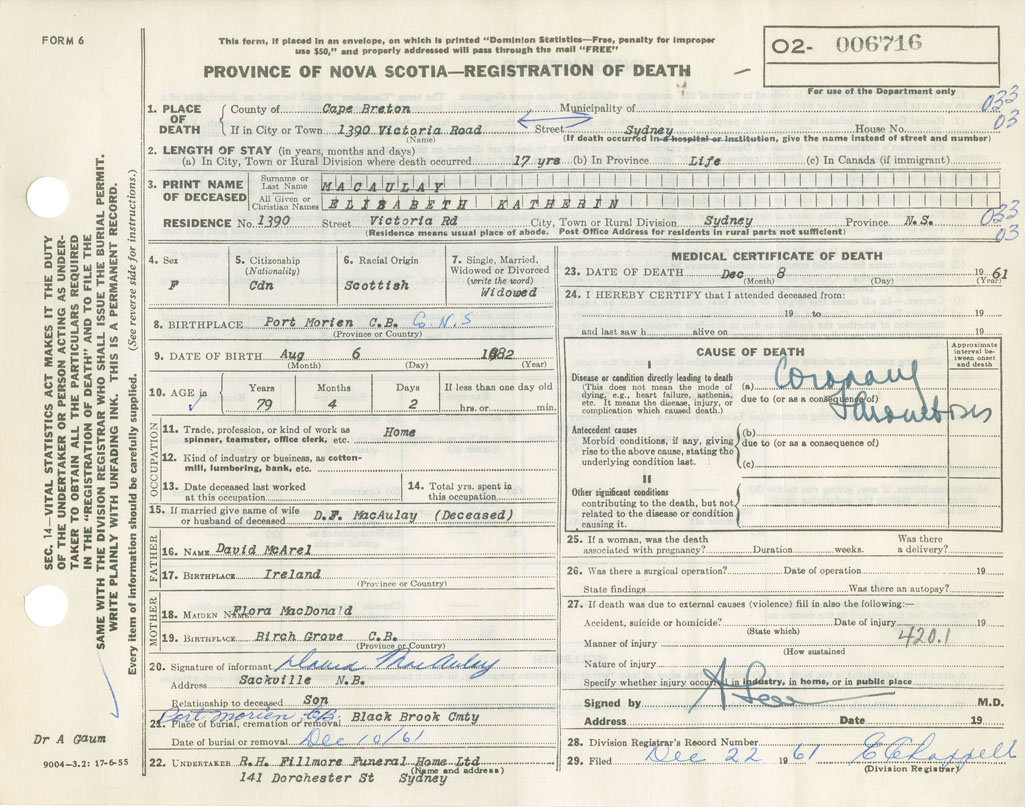 FORM 6
This form, if placed in an envelope, on which is printed "Dominion Statistics—Free, penalty for improper
use $50," and properly addressed will pass through the mail "FREE"
O2- 006716
For use of the Department only
PROVINCE OF NOVA SCOTIA—REGISTRATION OF DEATH
1. PLACE OF DEATH
County of Cape Breton Municipality of 033
If in City or Town 1390 Victoria Road Street Sydney House No. 03
(Name) (If death occurred in a hospital or institution, give the name instead of street and number)
2. LENGTH OF STAY (in years, months and days)
(a) In City, Town or Rural Division where death occurred 17 yrs (b) In Province Life (c) In Canada (if immigrant)
3. PRINT NAME OF DECEASED
Surname or Last Name MACAULAY
All Given or Christian Names ELISABETH KATHERIN
RESIDENCE No. 1390 Street Victoria Rd City, Town or Rural Division Sydney Province N.S. 033
(Residence means usual place of abode. Post Office Address for residents in rural parts not sufficient) 03
4. Sex
F
5. Citizenship
(Nationality)
Cdn
6. Racial Origin
Scottish
7. Single, Married,
Widowed or Divorced
(write the word)
Widowed
8. BIRTHPLACE Port Morien C.B. N S
(Province or Country)
9. DATE OF BIRTH Aug 6 1882
(Month) (Day) (Year)
10. AGE in
Years Months Days If less than one day old
79 4 2 hrs. or min.
OCCUPATION
11. Trade, profession, or kind of work as Home
spinner, teamster, office clerk, etc.
12. Kind of industry or business, as cotton-
mill, lumbering, bank, etc.
13. Date deceased last worked
at this occupation
14. Total yrs. spent in
this occupation
15. If married give name of wife
or husband of deceased D.F. MacAulay (Deceased)
FATHER
16. NAME David McArel
17. BIRTHPLACE Ireland
(Province or Country)
MOTHER
18. MAIDEN NAME Flora MacDonald
19. BIRTHPLACE Birch Grove C.B.
(Province or Country)
20. Signature of informant David MacAulay
Address Sackville N.B.
Relationship to deceased Son
Port Morien, CB. Black Brook Cmty
21. Place of burial, cremation or removal
Date of burial or removal Dec 10/61
22. UNDERTAKER R.H. Fillmore Funeral Home Ltd
(Name and address)
141 Dorchester St Sydney
MEDICAL CERTIFICATE OF DEATH
23. DATE OF DEATH Dec 8 1961
(Month) (Day) (Year)
24. I HEREBY CERTIFY that I attended deceased from:
19 to 19
and last saw h alive on 19
CAUSE OF DEATH
Approximate
interval be-
tween onset
and death
I
Disease or condition directly leading to death
(This does not mean the mode of
dying, e.g., heart failure, asthenia,
etc. It means the disease, injury, or
complication which caused death.)
(a) Coronary
due to (or as a consequence of)
Thrombosis
Antecedent causes
Morbid conditions, if any, giving
rise to the above cause, stating the
underlying condition last.
(b)
due to (or as a consequence of)
(c)
II
Other significant conditions
contributing to the death, but not
related to the disease or condition
causing it.
25. If a woman, was the death
associated with pregnancy? Duration weeks. Was there
a delivery?
26. Was there a surgical operation? Date of operation 19
State findings Was there an autopsy?
27. If death was due to external causes (violence) fill in also the following:—
Accident, suicide or homicide? Date of injury 19
(State which)
420.1
Manner of injury
(How sustained)
Nature of injury
Specify whether injury occurred in industry, in home, or in public place
Signed by M.D.
Address Date 19
28. Division Registrar's Record Number
29. Filed Dec 22 1961 E Chappell
(Division Registrar)
SEC. 14—VITAL STATISTICS ACT MAKES IT THE DUTY
OF THE UNDERTAKER OR PERSON ACTING AS UNDER-
TAKER TO OBTAIN ALL THE PARTICULARS REQUIRED
IN THE "REGISTRATION OF DEATH" AND TO FILE THE
SAME WITH THE DIVISION REGISTRAR WHO SHALL ISSUE THE BURIAL PERMIT.
WRITE PLAINLY WITH UNFADING INK. THIS IS A PERMANENT RECORD.
Every item of information should be carefully supplied. (See reverse side for instructions.)
Dr A Gaum
9004-3.2: 17-6-55